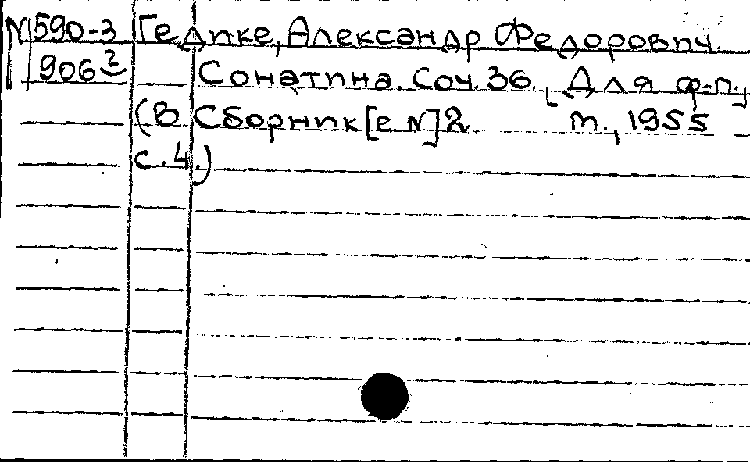 N590-3 Гедике, Александр Федорович.
906² Сонатина. Соч 36 [Для ф-п.]
(В Сборник[е N]2. м., 1955
с. 4.)